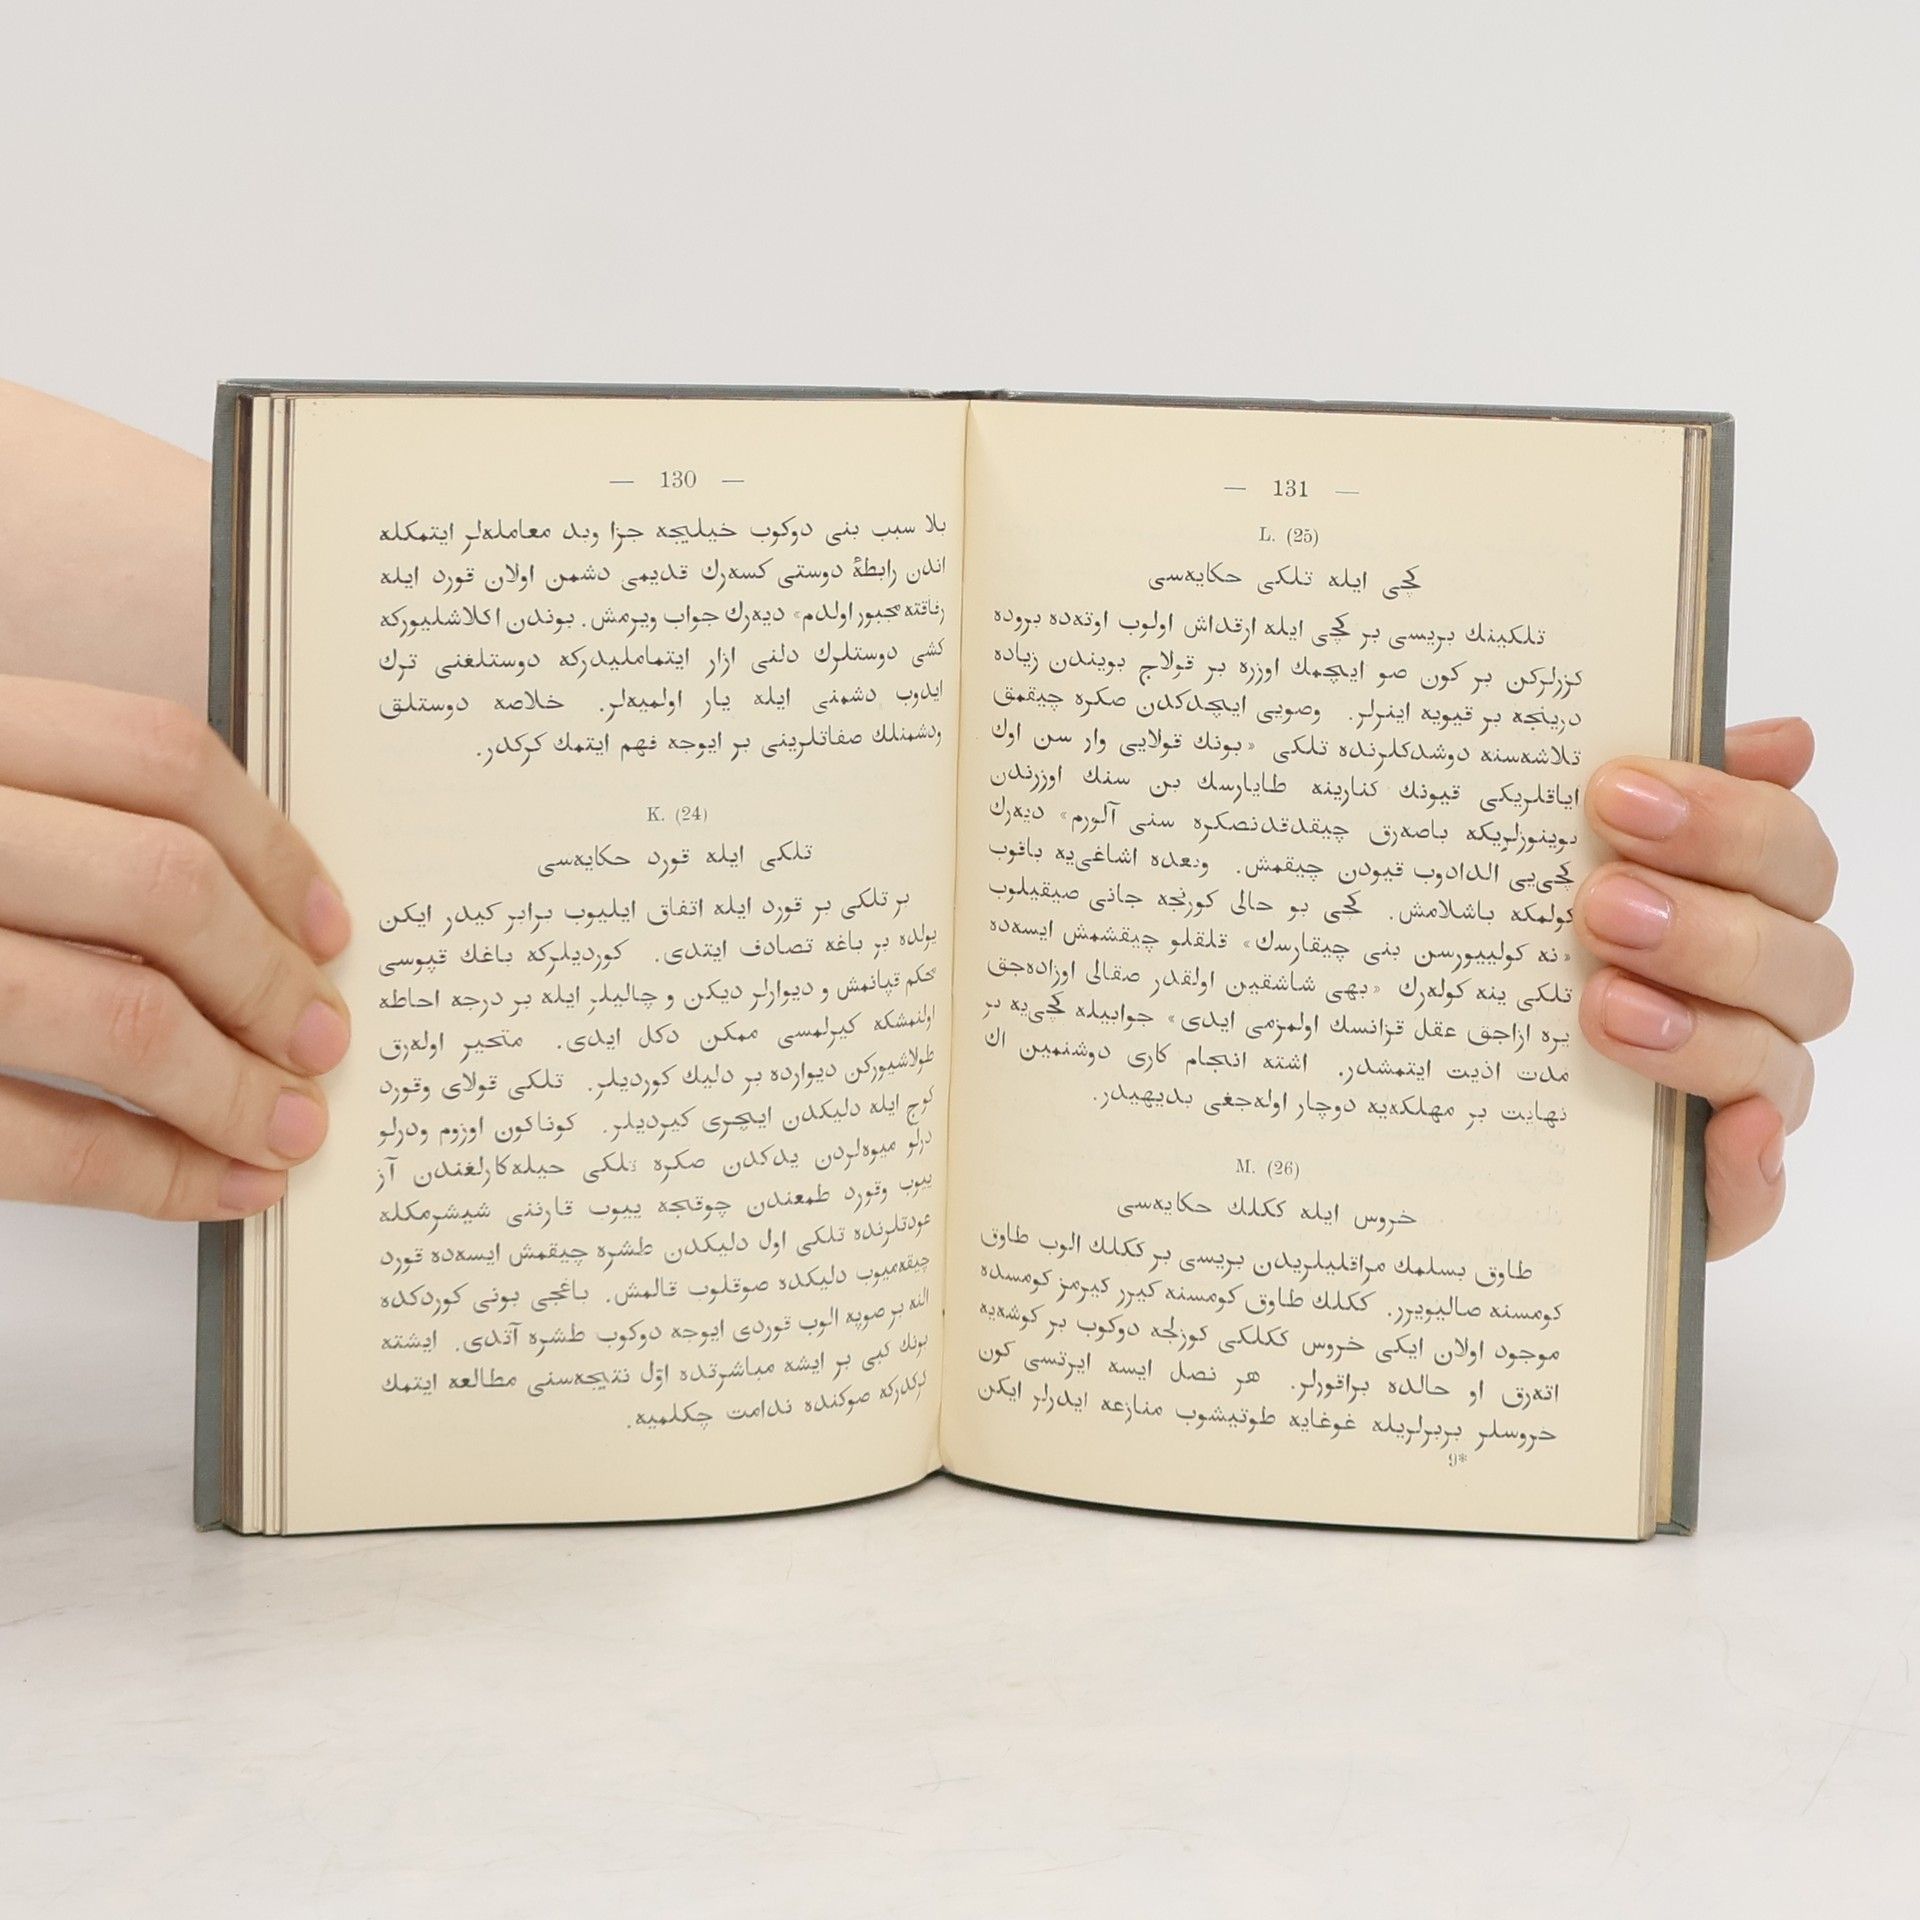 — 130 —
بلا سبب بنى دوكوب خيليجه جزا وبد معامله‌لر ايتمكله
اندن رابطهٔ دوستى كسه‌رك قديمى دشمن اولان قورد ايله
رفاقته مجبور اولدم» ديه‌رك جواب ويرمش. بوندن اكلاشليوركه
كشى دوستلرك دلنى ازار ايتماملیدركه دوستلغنى ترك
ايدوب دشمنى ايله يار اولميه‌لر. خلاصه دوستلق
ودشمنلك صفاتلرينى بر ايوجه فهم ايتمك كركدر.
K. (24)
تلكى ايله قورد حكايه‌سى
بر تلكى بر قورد ايله اتفاق ايليوب برابر كيدر ايكن
يولده بر باغه تصادف ايتدى. كورديلركه باغك قپوسى
محكم قپانمش و ديوارلر ديكن و چاليلر ايله بر درجه احاطه
اولنمشكه كيرلمسى ممكن دكل ايدى. متحير اوله‌رق
طولاشيوركن ديوارده بر دليك كورديلر. تلكى قولاى وقورد
كوج ايله دليكدن ايچرى كيرديلر. كوناكون اوزوم ودرلو
درلو ميوه‌لردن يدكدن صكره تلكى حيله‌كارلغندن آز
ييوب وقورد طمعندن چوقجه ييوب قارننى شيشرمكله
عودتلرنده تلكى اول دليكدن طشره چيقمش ايسه‌ده قورد
چيقه‌ميوب دليكده صوقلوب قالمش. باغجى بونى كوردكده
النه بر صوپه الوب قوردى ايوجه دوكوب طشره آتدى. ايشته
بونك كبى بر ايشه مباشرتده اوّل نتيجه‌سنى مطالعه ايتمك
كركدركه صوكنده ندامت چكلميه.
— 131 —
L. (25)
كچى ايله تلكى حكايه‌سى
تلكينك بريسى بر كچى ايله ارقداش اولوب اوته‌ده بروده
كزرلركن بر كون صو ايچمك اوزره بر قولاج بويندن زياده
درينجه بر قيويه اينرلر. وصويى ايچدكدن صكره چيقمق
تلاشه‌سنه دوشدكلرنده تلكى «بونك قولايى وار سن اوك
اياقلريكى قيونك كنارينه طايارسك بن سنك اوزرندن
بوينوزلريكه باصه‌رق چيقدقدنصكره سنى آلورم» ديه‌رك
كچى‌يى الدادوب قيودن چيقمش. وبعده اشاغى‌يه باقوب
كولمكه باشلامش. كچى بو حالى كورنجه جانى صيقيلوب
«نه كولييورسن بنى چيقارسك» قلقلو چيقشمش ايسه‌ده
تلكى ينه كوله‌رك «بهى شاشقين اولقدر صقالى اوزاده‌جق
يره ازاجق عقل قزانسك اولمزمى ايدى» جوابيله كچى‌يه بر
مدت اذيت ايتمشدر. اشته انجام كارى دوشنمين اك
نهايت بر مهلكه‌يه دوچار اوله‌جغى بديهيدر.
M. (26)
خروس ايله ككلك حكايه‌سى
طاوق بسلمك مراقليلريدن بريسى بر ككلك الوب طاوق
كومسنه صاليويرر. ككلك طاوق كومسنه كيرر كيرمز كومسده
موجود اولان ايكى خروس ككلكى كوزلجه دوكوب بر كوشه‌يه
اته‌رق او حالده براقورلر. هر نصل ايسه ايرتسى كون
خروسلر بربرلريله غوغايه طوتيشوب منازعه ايدرلر ايكن
9*